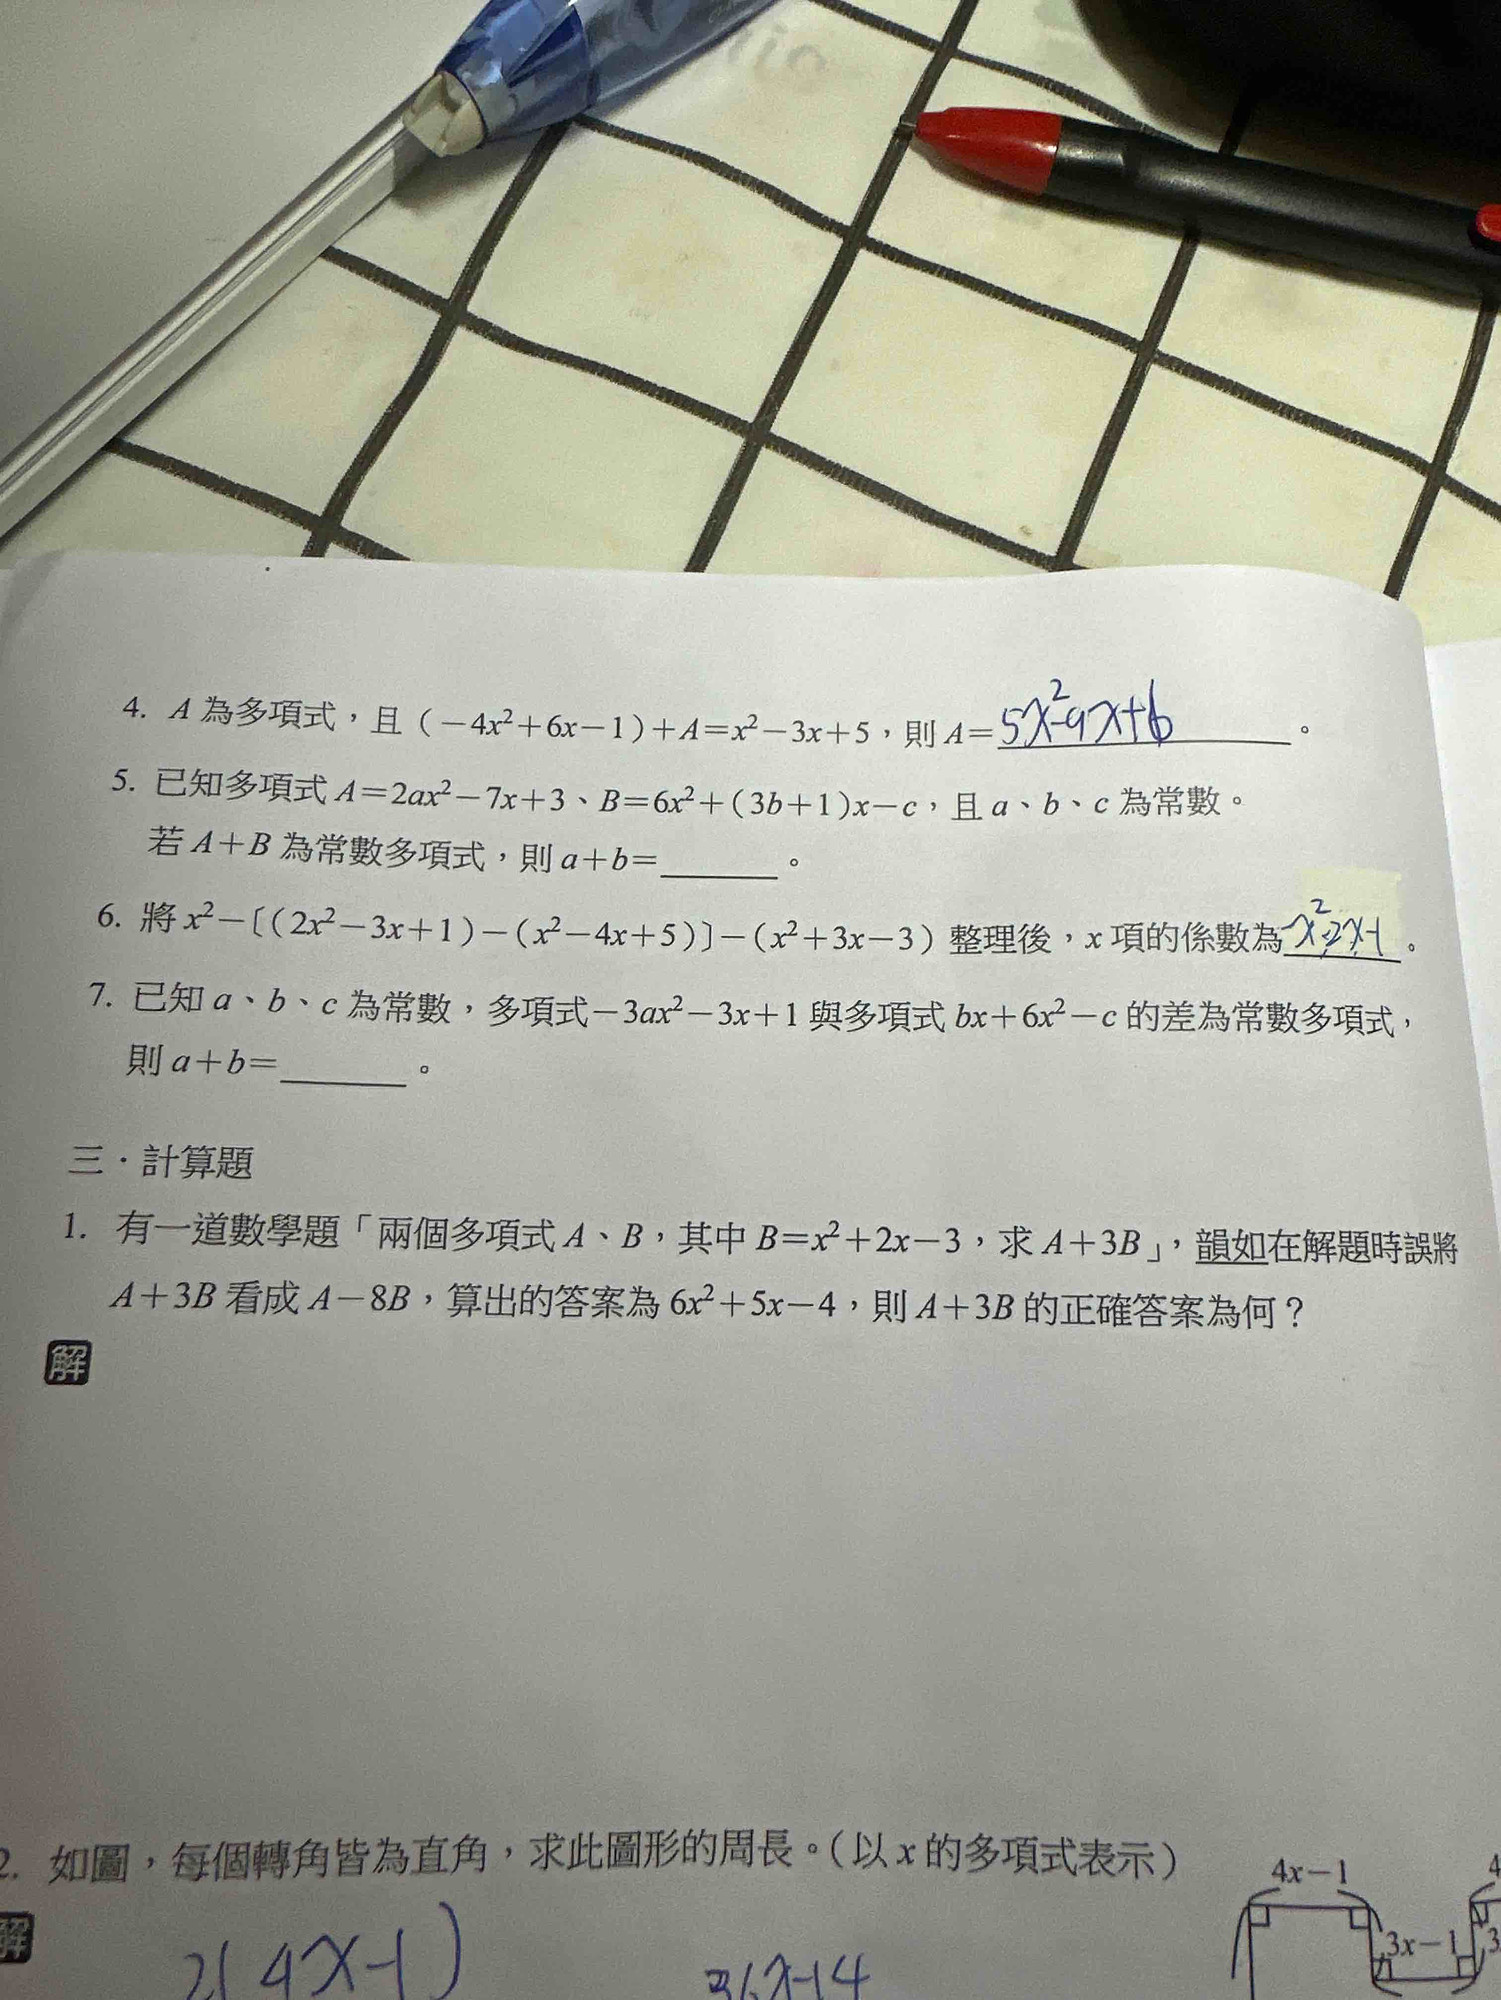 4. A 為多項式，且（－4x²＋6x－1）＋A＝x²－3x＋5，則 A＝5x²-9x+6。
5. 已知多項式 A＝2ax²－7x＋3、B＝6x²＋(3b＋1)x－c，且 a、b、c 為常數。
若 A＋B 為常數多項式，則 a＋b＝______。
6. 將 x²－〔(2x²－3x＋1)－(x²－4x＋5)〕－(x²＋3x－3) 整理後，x 項的係數為-x²-2x-1。
7. 已知 a、b、c 為常數，多項式－3ax²－3x＋1 與多項式 bx＋6x²－c 的差為常數多項式，
則 a＋b＝______。
三．計算題
1. 有一道數學題「兩個多項式 A、B，其中 B＝x²＋2x－3，求 A＋3B」，韻如在解題時誤將
A＋3B 看成 A－8B，算出的答案為 6x²＋5x－4，則 A＋3B 的正確答案為何？
解
2. 如圖，每個轉角皆為直角，求此圖形的周長。（以 x 的多項式表示）
4x－1
4
3x－1
3
解
2(4x-1)
36x-14